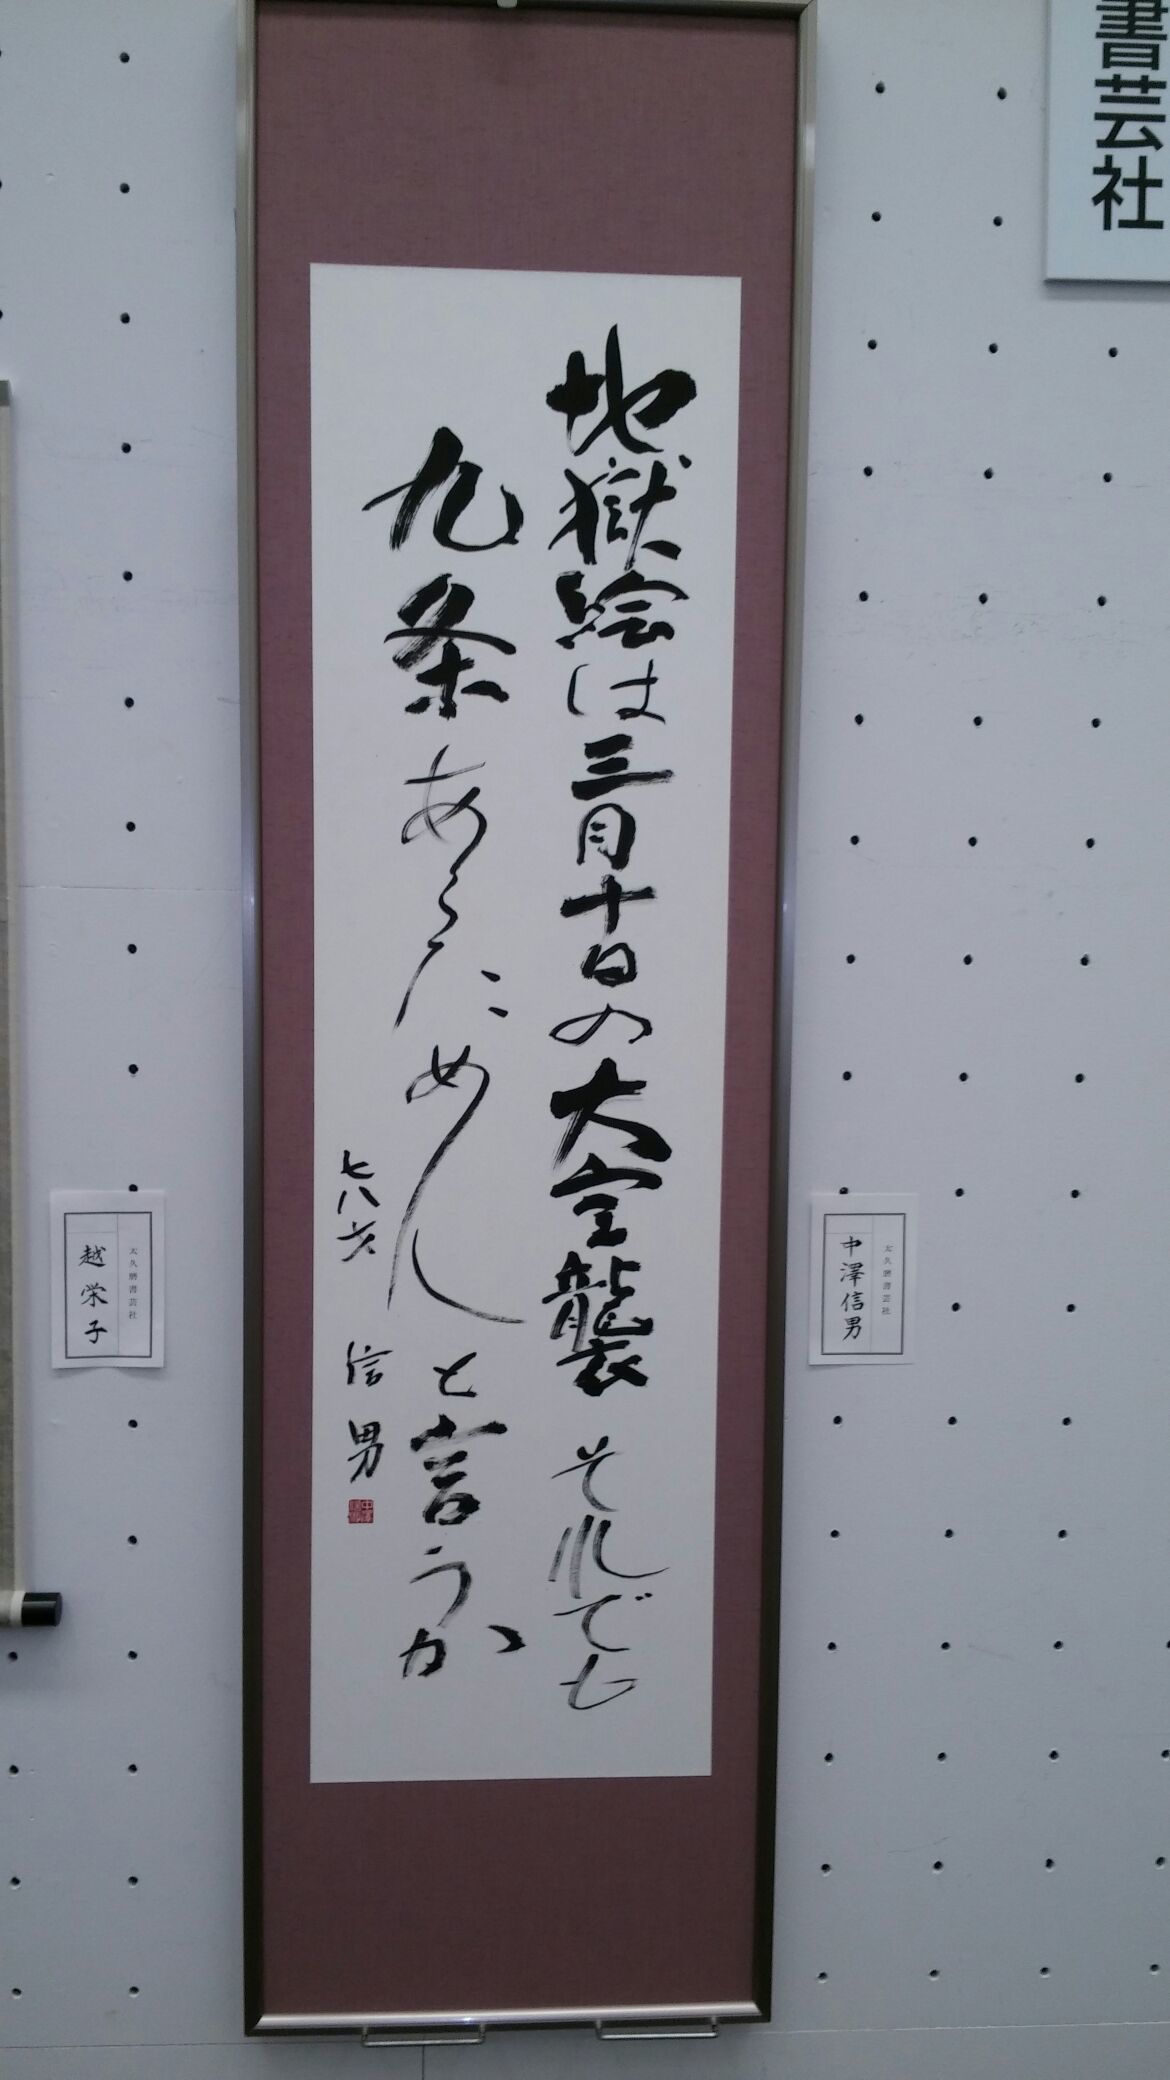 書芸社
地獄絵は三月十日の大空襲それでも
九条あらためんと言うか
七八六 信男
太久磨書芸社
中澤信男
太久磨書芸社
越栄子